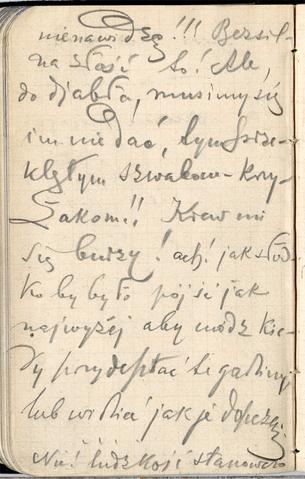 nienawidzę!!! Bezsil-
na złość to! Ale,
do djabła, musimy się
im nie dać, tym prze-
klętym szwabom-krzy-
żakom!! Krew mi
się burzy! ach! jak słod-
ko by było pójść jak
najwyżej aby módz kie-
dy przydeptać te gadziny,
lub widzieć jak je depczą,
Nie! ludzkość stanowczo